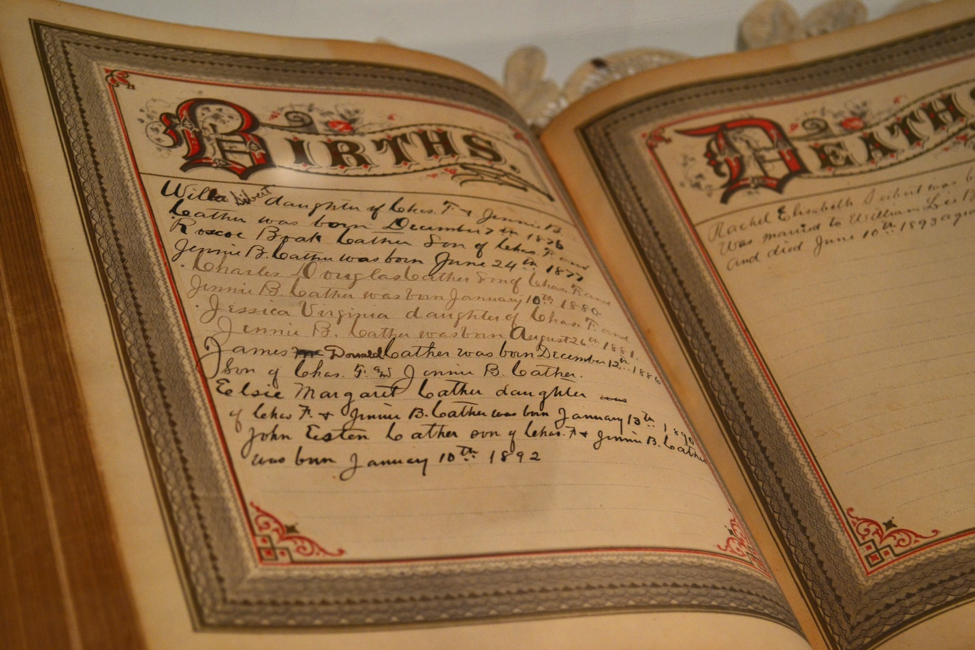 BIRTHS.
Willa Sibert daughter of Chas. F. & Jennie B.
Cather was born December 7th 1876
Roscoe Boak Cather Son of Chas. F. and
Jennie B. Cather was born June 24th 1877
Charles Douglas Cather Son of Chas. F. and
Jennie B. Cather was born January 10th 1880
Jessica Virginia daughter of Chas. F. and
Jennie B. Cather was born August 26th 1881.
James Donald Cather was born December 12th 1886
Son of Chas. F. & Jennie B. Cather.
Elsie Margaret Cather daughter
of Chas F. & Jennie B. Cather was born January 13th 1890
John Esten Cather son of Chas. F. & Jennie B. Cather
was born January 10th 1892
DEATHS
Rachel Elisabeth Seibert was
was married to William Lee
and died June 10th 1893 aged